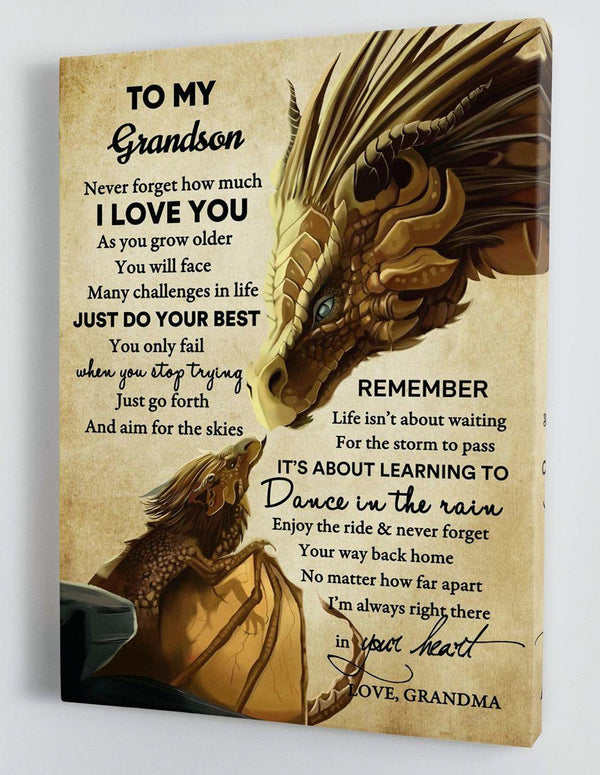 TO MY
Grandson
Never forget how much
I LOVE YOU
As you grow older
You will face
Many challenges in life
JUST DO YOUR BEST
You only fail
when you stop trying
Just go forth
And aim for the skies
REMEMBER
Life isn't about waiting
For the storm to pass
IT'S ABOUT LEARNING TO
Dance in the rain
Enjoy the ride & never forget
Your way back home
No matter how far apart
I'm always right there
in your heart
LOVE, GRANDMA